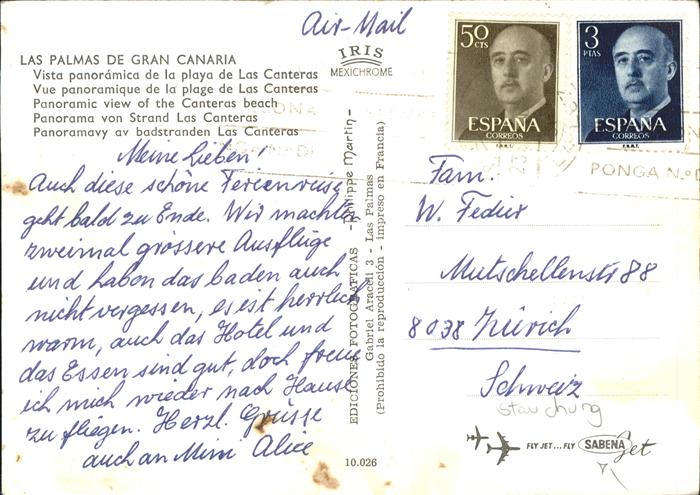 Air-Mail
LAS PALMAS DE GRAN CANARIA
Vista panorámica de la playa de Las Canteras
Vue panoramique de la plage de Las Canteras
Panoramic view of the Canteras beach
Panorama von Strand Las Canteras
Panoramav av badstranden Las Canteras
IRIS
MEXICHROME
50
CTS
ESPAÑA
CORREOS
F.N.M.T.
3
PTAS
ESPAÑA
CORREOS
F.N.M.T.
PONGA N.º D
Meine Lieben!
Auch diese schöne Ferienreise
geht bald zu Ende. Wir machten
zweimal grössere Ausflüge
und haben das baden auch
nicht vergessen, es ist herrlich
warm, auch das Hotel und
das Essen sind gut, doch freue
ich mich wieder nach Hause
zu fliegen. Herzl. Grüsse
auch an Mimi Alice
EDICIONES FOTOGRAFICAS - Philippe Martin -
Gabriel Araceli 3 - Las Palmas
(Prohibido la reproducción - Impreso en Francia)
10.026
Fam.
W. Fedier
Mutschellenstr 88
8038 Zürich
Schweiz
FLY JET...FLY SABENA jet